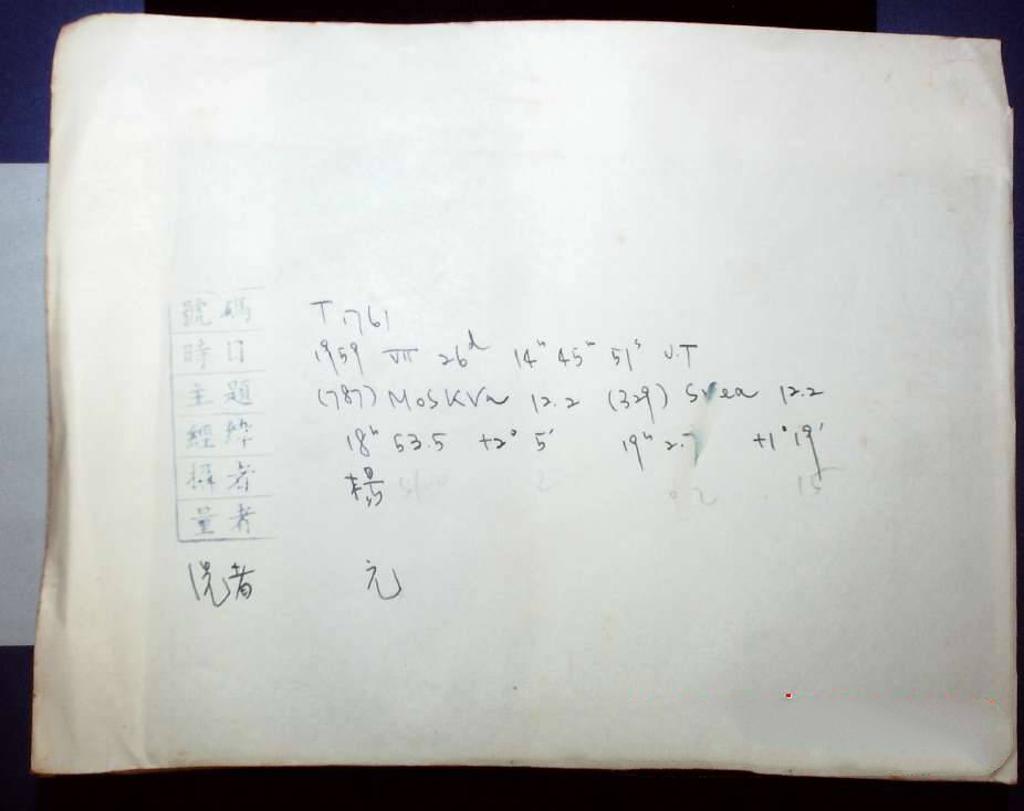 號碼 T 1761
時日 1959 VII 26d 14h 45m 51s U.T
主題 (787) MOSKVa 12.2 (329) Svea 12.2
經緯 18h 53.5 +2° 5' 19h 2.7 +1° 19'
攝者 楊
量者
洗者 元